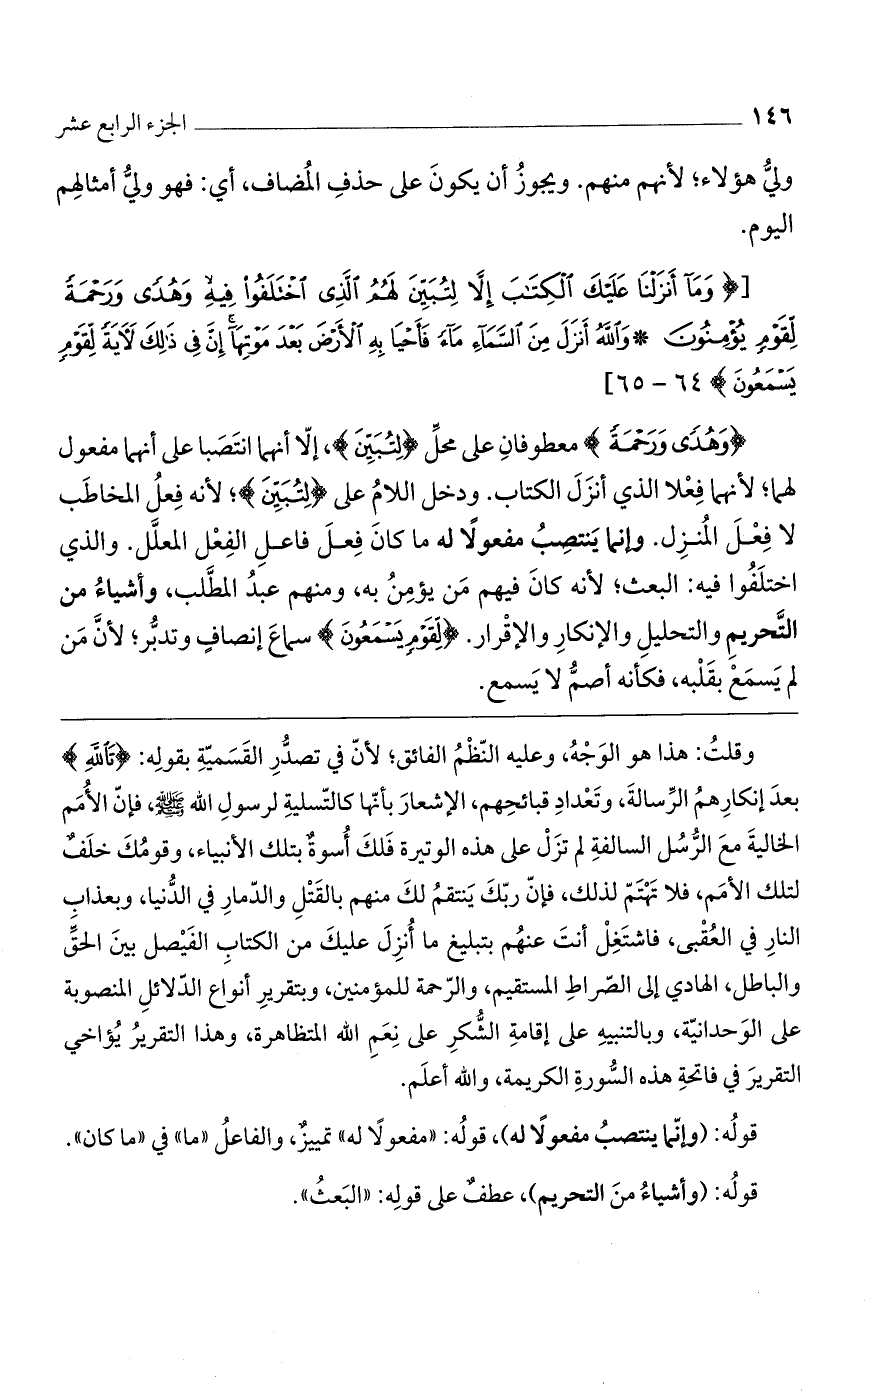 ١٤٦ الجزء الرابع عشر
وليُّ هؤلاء؛ لأنهم منهم. ويجوزُ أن يكونَ على حذفِ المُضاف، أي: فهو وليُّ أمثالِهم
اليوم.
[﴿ وَمَآ أَنزَلْنَا عَلَيْكَ ٱلْكِتَٰبَ إِلَّا لِتُبَيِّنَ لَهُمُ ٱلَّذِى ٱخْتَلَفُوا۟ فِيهِ ۙ وَهُدًى وَرَحْمَةً
لِّقَوْمٍ يُؤْمِنُونَ * وَٱللَّهُ أَنزَلَ مِنَ ٱلسَّمَآءِ مَآءً فَأَحْيَا بِهِ ٱلْأَرْضَ بَعْدَ مَوْتِهَآ ۚ إِنَّ فِى ذَٰلِكَ لَءَايَةً لِّقَوْمٍ
يَسْمَعُونَ ﴾ ٦٤ - ٦٥]
﴿وَهُدًى وَرَحْمَةً ﴾ معطوفانِ على محلِّ ﴿لِتُبَيِّنَ ﴾، إلّا أنهما انتَصَبا على أنهما مفعول
لهما؛ لأنهما فِعْلا الذي أنزَلَ الكتاب. ودخل اللامُ على ﴿لِتُبَيِّنَ ﴾؛ لأنه فِعلُ المخاطَب
لا فِعْلَ المُنـزِل. وإنما يَنتصِبُ مفعولًا له ما كانَ فِعلَ فاعلِ الفِعْل المعلَّل. والذي
اختلَفُوا فيه: البعث؛ لأنه كانَ فيهم مَن يؤمِنُ به، ومنهم عبدُ المطَّلب، وأشياءُ من
التَّحريمِ والتحليلِ والإنكارِ والإقْرار. ﴿لِّقَوْمٍ يَسْمَعُونَ ﴾ سماعَ إنصافٍ وتدبُّر؛ لأنَّ مَن
لم يَسمَعْ بقَلْبه، فكأنه أصمُّ لا يَسمع.
وقلتُ: هذا هو الوَجْهُ، وعليه النّظْمُ الفائق؛ لأنّ في تصدُّرِ القَسَميّةِ بقولِه: ﴿تَٱللَّهِ ﴾
بعدَ إنكارِهمُ الرِّسالةَ، وتَعْدادِ قبائحِهم، الإشعارَ بأنّها كالتّسليةِ لرسولِ الله ﷺ، فإنّ الأُمَم
الخاليةَ معَ الرُّسُل السالفةِ لم تزَلْ على هذه الوتيرة فَلكَ أُسوةٌ بتلك الأنبياء، وقومُكَ خلَفٌ
لتلك الأمَم، فلا تَهْتَمّ لذلك، فإنّ ربّكَ يَنتقمُ لكَ منهم بالقَتْلِ والدّمارِ في الدُّنيا، وبعذابِ
النارِ في العُقْبى، فاشتَغِلْ أنتَ عنهُم بتبليغِ ما أُنزِلَ عليكَ من الكتابِ الفَيْصل بينَ الحقِّ
والباطل، الهادي إلى الصّراطِ المستقيم، والرّحمة للمؤمنين، وبتقريرِ أنواع الدّلائلِ المنصوبة
على الوَحدانيّة، وبالتنبيهِ على إقامةِ الشُّكرِ على نِعَمِ الله المتظاهرة، وهذا التقريرُ يُؤاخي
التقريرَ في فاتحةِ هذه السُّورةِ الكريمة، والله أعلَم.
قولُه: (وإنّما ينتصبُ مفعولًا له)، قولُه: «مفعولًا له» تمييزٌ، والفاعلُ «ما» في «ما كان».
قولُه: (وأشياءُ منَ التحريم)، عطفٌ على قولِه: «البَعثُ».